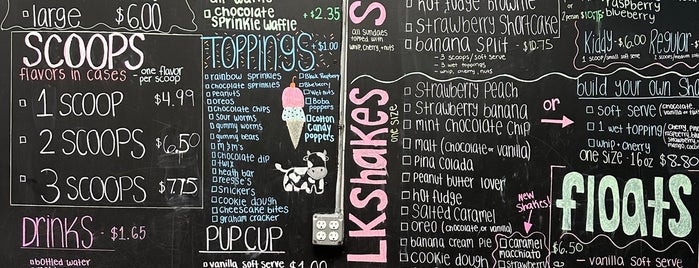 large $6.00
SCOOPS
flavors in cases - one flavor per scoop
1 SCOOP $4.99
2 SCOOPS $6.50
3 SCOOPS $7.75
DRINKS - $1.65
bottled water
waffle
chocolate sprinkle waffle + $2.35
TOPPINGS + $1.00
rainbow sprinkles
chocolate sprinkles
peanuts
oreos
chocolate chips
sour worms
gummy worms
gummy bears
m+m's
chocolate dip
twix
heath bar
reese's
snickers
cookie dough
cheesecake bites
graham cracker
Black Raspberry
Blueberry
Wet nuts
Boba poppers
Cotton Candy poppers
PUP CUP
vanilla soft serve $1.00
LKShakes
one size
all sundaes topped with whip, cherry + nuts
hot fudge brownie
strawberry Shortcake
banana split - $10.75
- 3 scoops/soft serve
- 3 wet toppings
- whip, cherry, nuts
Strawberry Peach
Strawberry banana
mint chocolate chip
malt (chocolate or vanilla)
pina colada
Peanut butter lover
hot fudge
Salted caramel
oreo (chocolate or vanilla)
banana cream pie
cookie dough
New Shakes!
caramel macchiato
strawberry
or →
raspberry
blueberry
Kiddy - $6.00 Regular -
1 scoop/small soft serve
build your own Sha
soft serve (chocolate
1 wet topping
whip + cherry
one size - 16oz $8.80
floats
$6.50
- vanilla soft serve